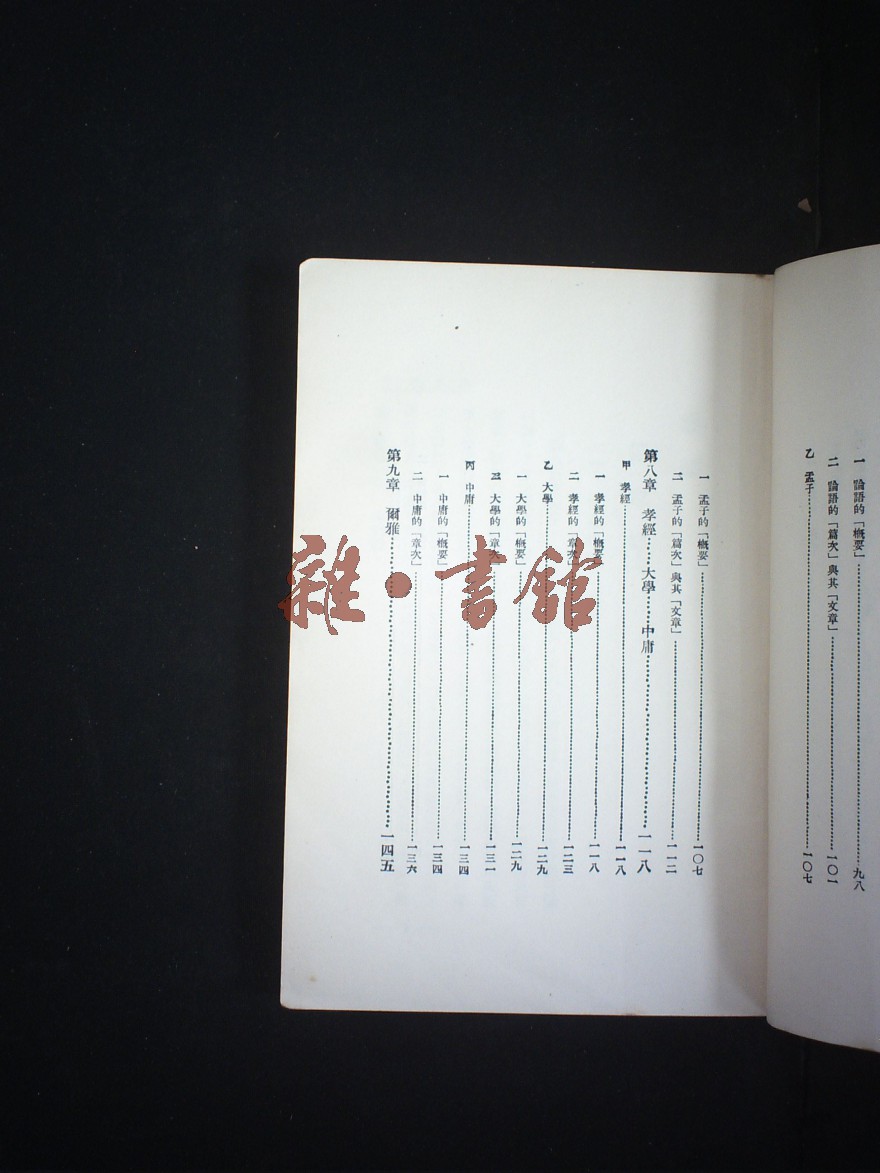 一 論語的「概要」……九八
二 論語的「篇次」與其「文章」……一〇一
乙 孟子……一〇七
一 孟子的「概要」……一〇七
二 孟子的「篇次」與其「文章」……一一二
第八章 孝經……大學……中庸……一一八
甲 孝經……一一八
一 孝經的「概要」……一一八
二 孝經的「章次」……一二三
乙 大學……一二九
一 大學的「概要」……一二九
二 大學的「章次」……一三一
丙 中庸……一三四
一 中庸的「概要」……一三四
二 中庸的「章次」……一三六
第九章 爾雅……一四五
雜·書館